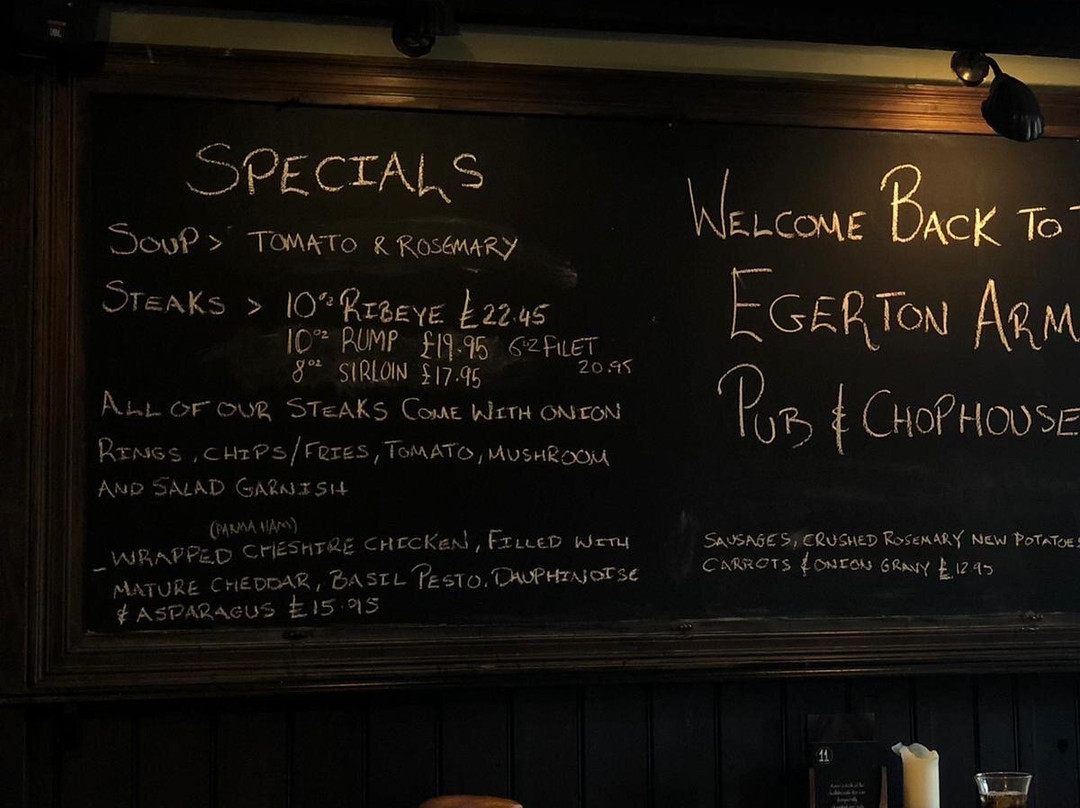 SPECIALS
SOUP > TOMATO & ROSEMARY
STEAKS > 10oz RIBEYE £22.45
10oz RUMP £19.95 6oz FILET
8oz SIRLOIN £17.95 20.95
ALL OF OUR STEAKS COME WITH ONION
RINGS, CHIPS/FRIES, TOMATO, MUSHROOM
AND SALAD GARNISH
(PARMA HAM)
_WRAPPED CHESHIRE CHICKEN, FILLED WITH
MATURE CHEDDAR, BASIL PESTO. DAUPHINOISE
& ASPARAGUS £15.95
WELCOME BACK TO
EGERTON ARM
PUB & CHOPHOUSE
SAUSAGES, CRUSHED ROSEMARY NEW POTATOES
CARROTS & ONION GRAVY £12.95
11